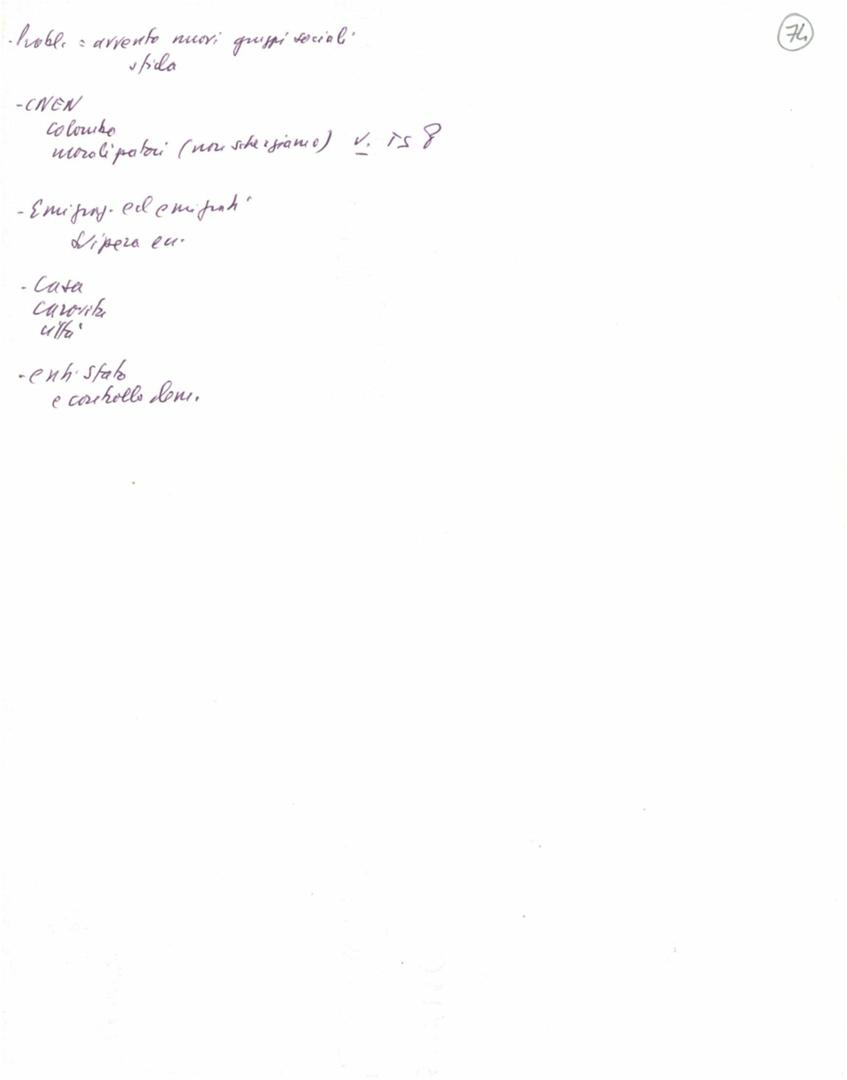 74
- Probl. = avvento nuovi gruppi sociali
sfida
- CNEN
Colombo
moralizzatori (non scherziamo) v. TS 8
- Emigraz. ed emigrati
ec.
- Casa
carovita
città
- enti stato
e controllo dem.